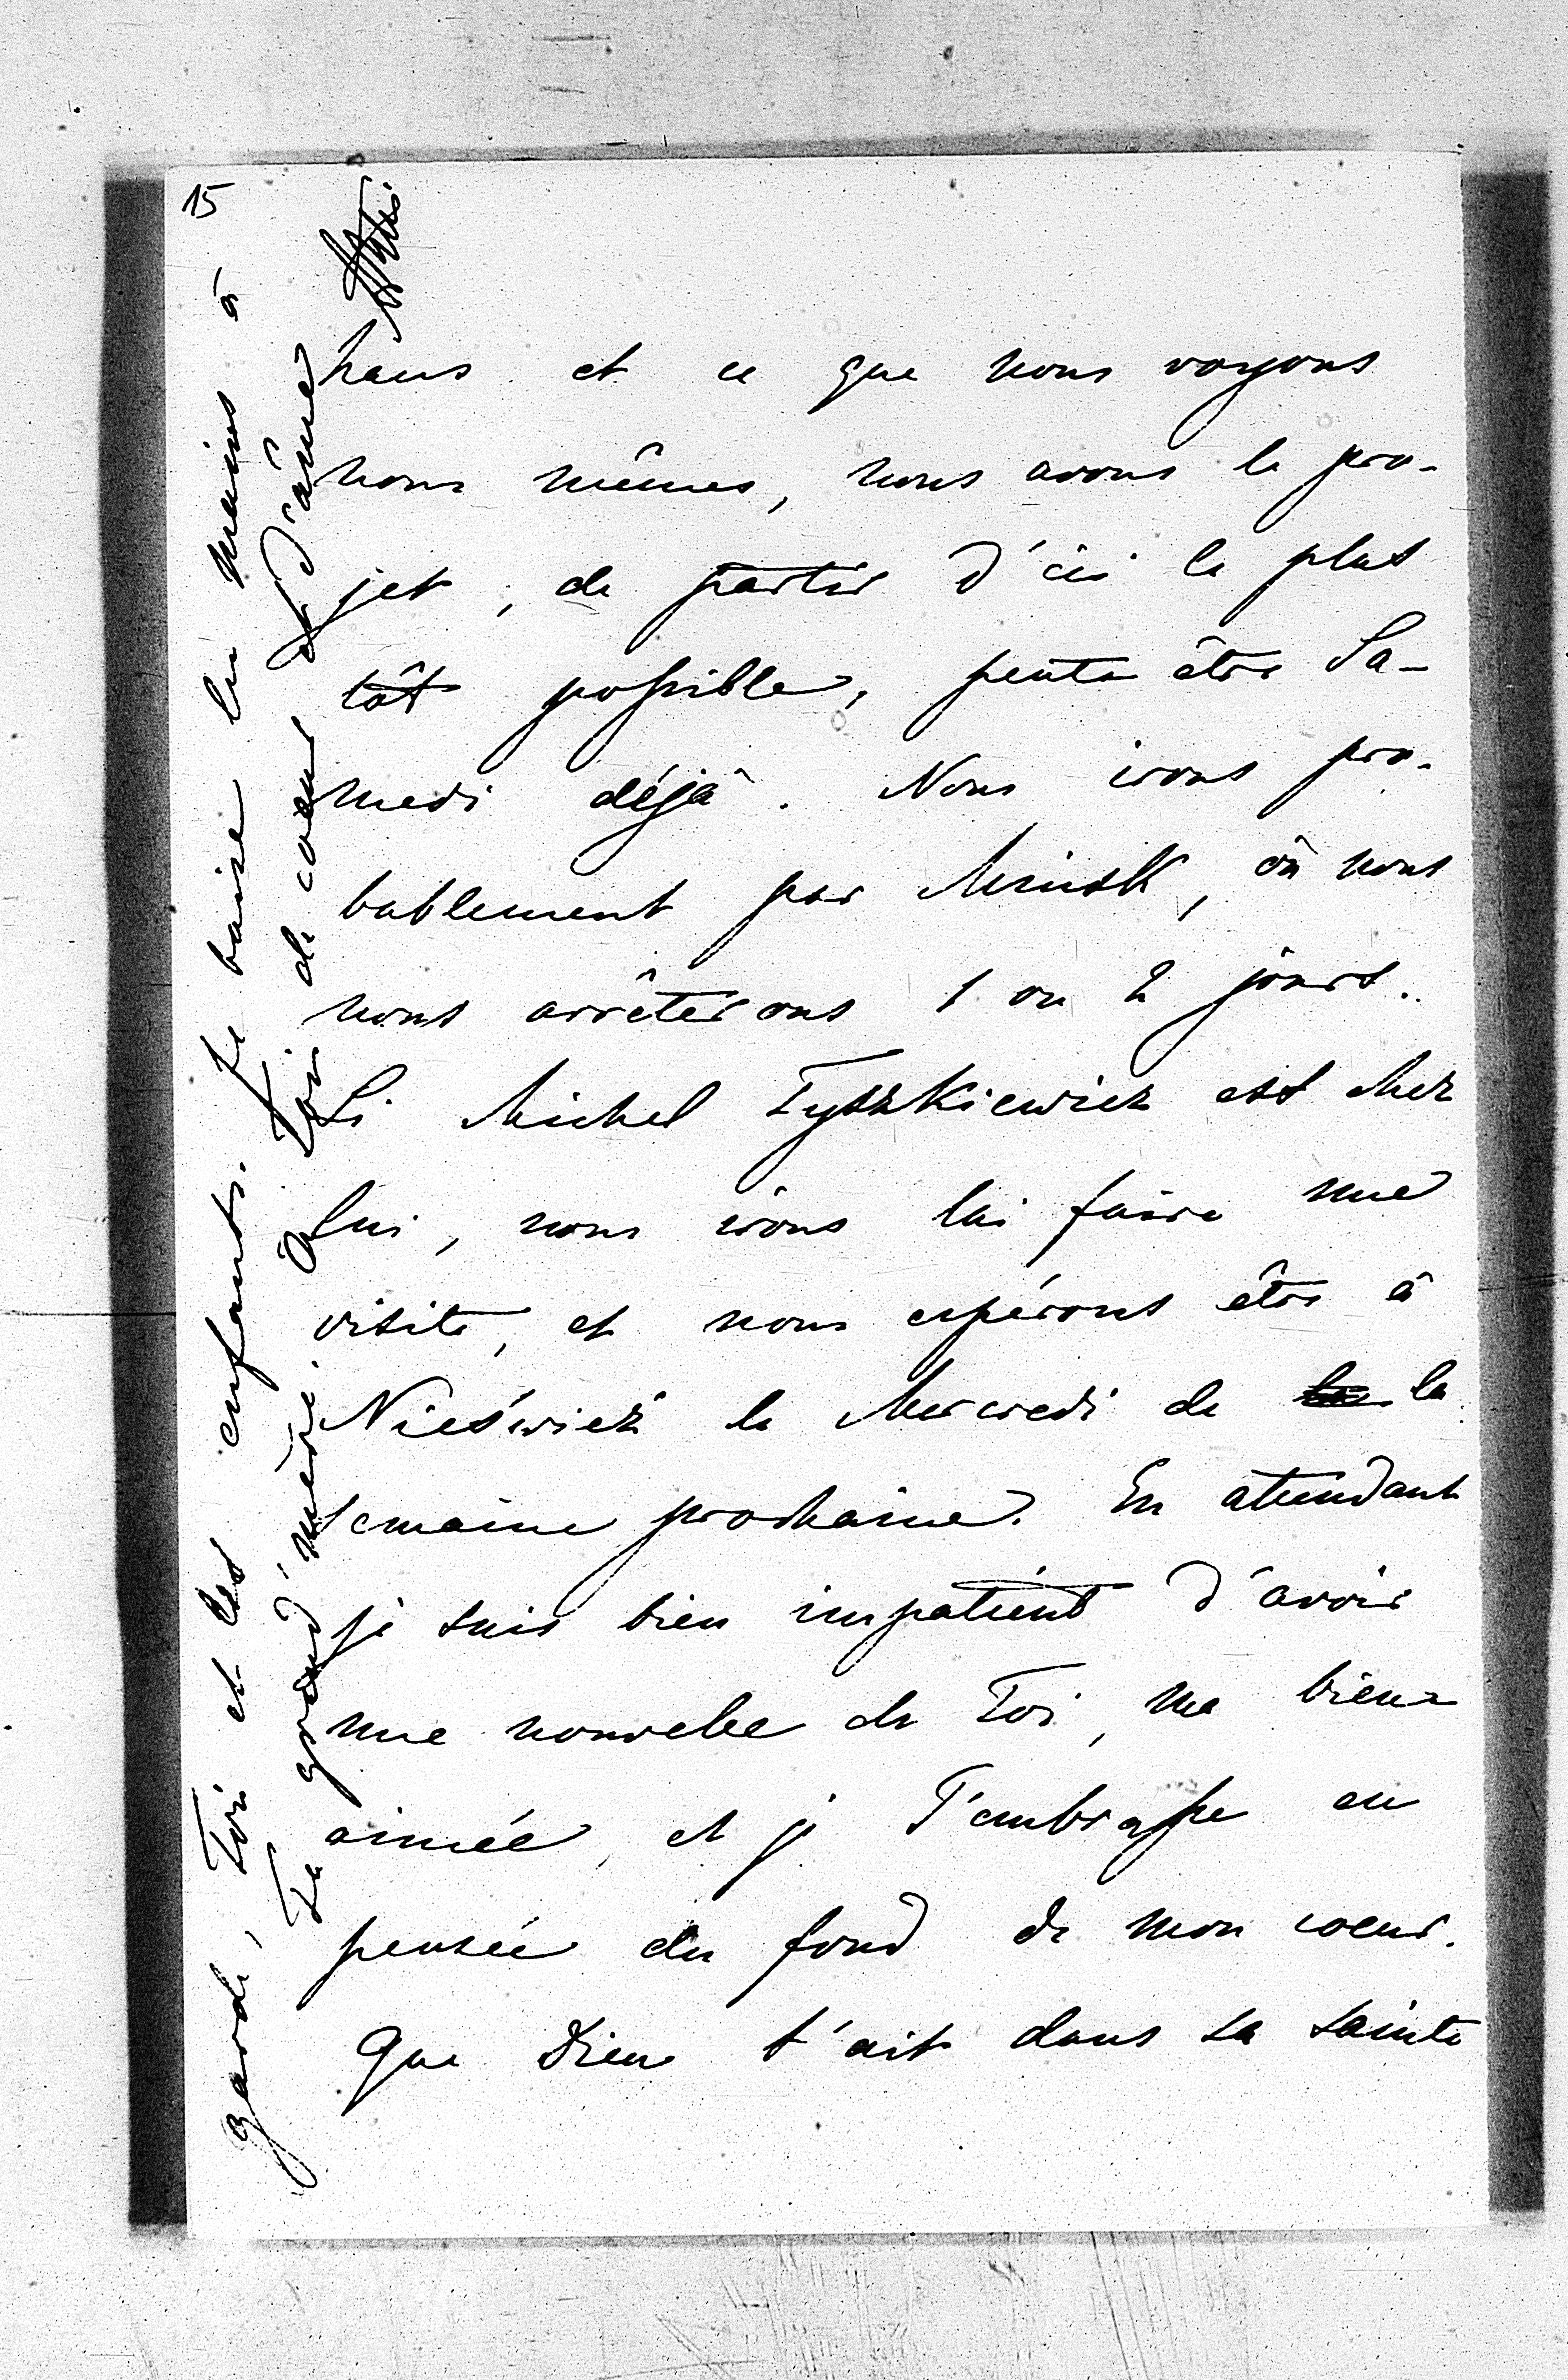 15
hens et ce que nous voyons
nous mêmes, nous avons le pro-
jet, de partir d'ici le plus
tôt possible, peute être Sa-
medi déjà. Nous irons pro-
bablement par Minsk, où nous
nous arrêterons 1 ou 2 jours.
Si Michel Tyszkiewicz est chez
lui, nous irons lui faire une
visite, et nous espérons être à
Nieświeź le Mercredi de la
semaine prochaine. En attendant
je suis bien impatient d'avoir
une nouvelle de Toi, ma bien-
aimée, et je T'embrasse en
pensée du fond de mon coeur.
Que Dieu t'ait dans sa sainte
garde, Toi et les enfants. Je baise les mains à
Ta grand'mère. à Toi de coeur et d'âme